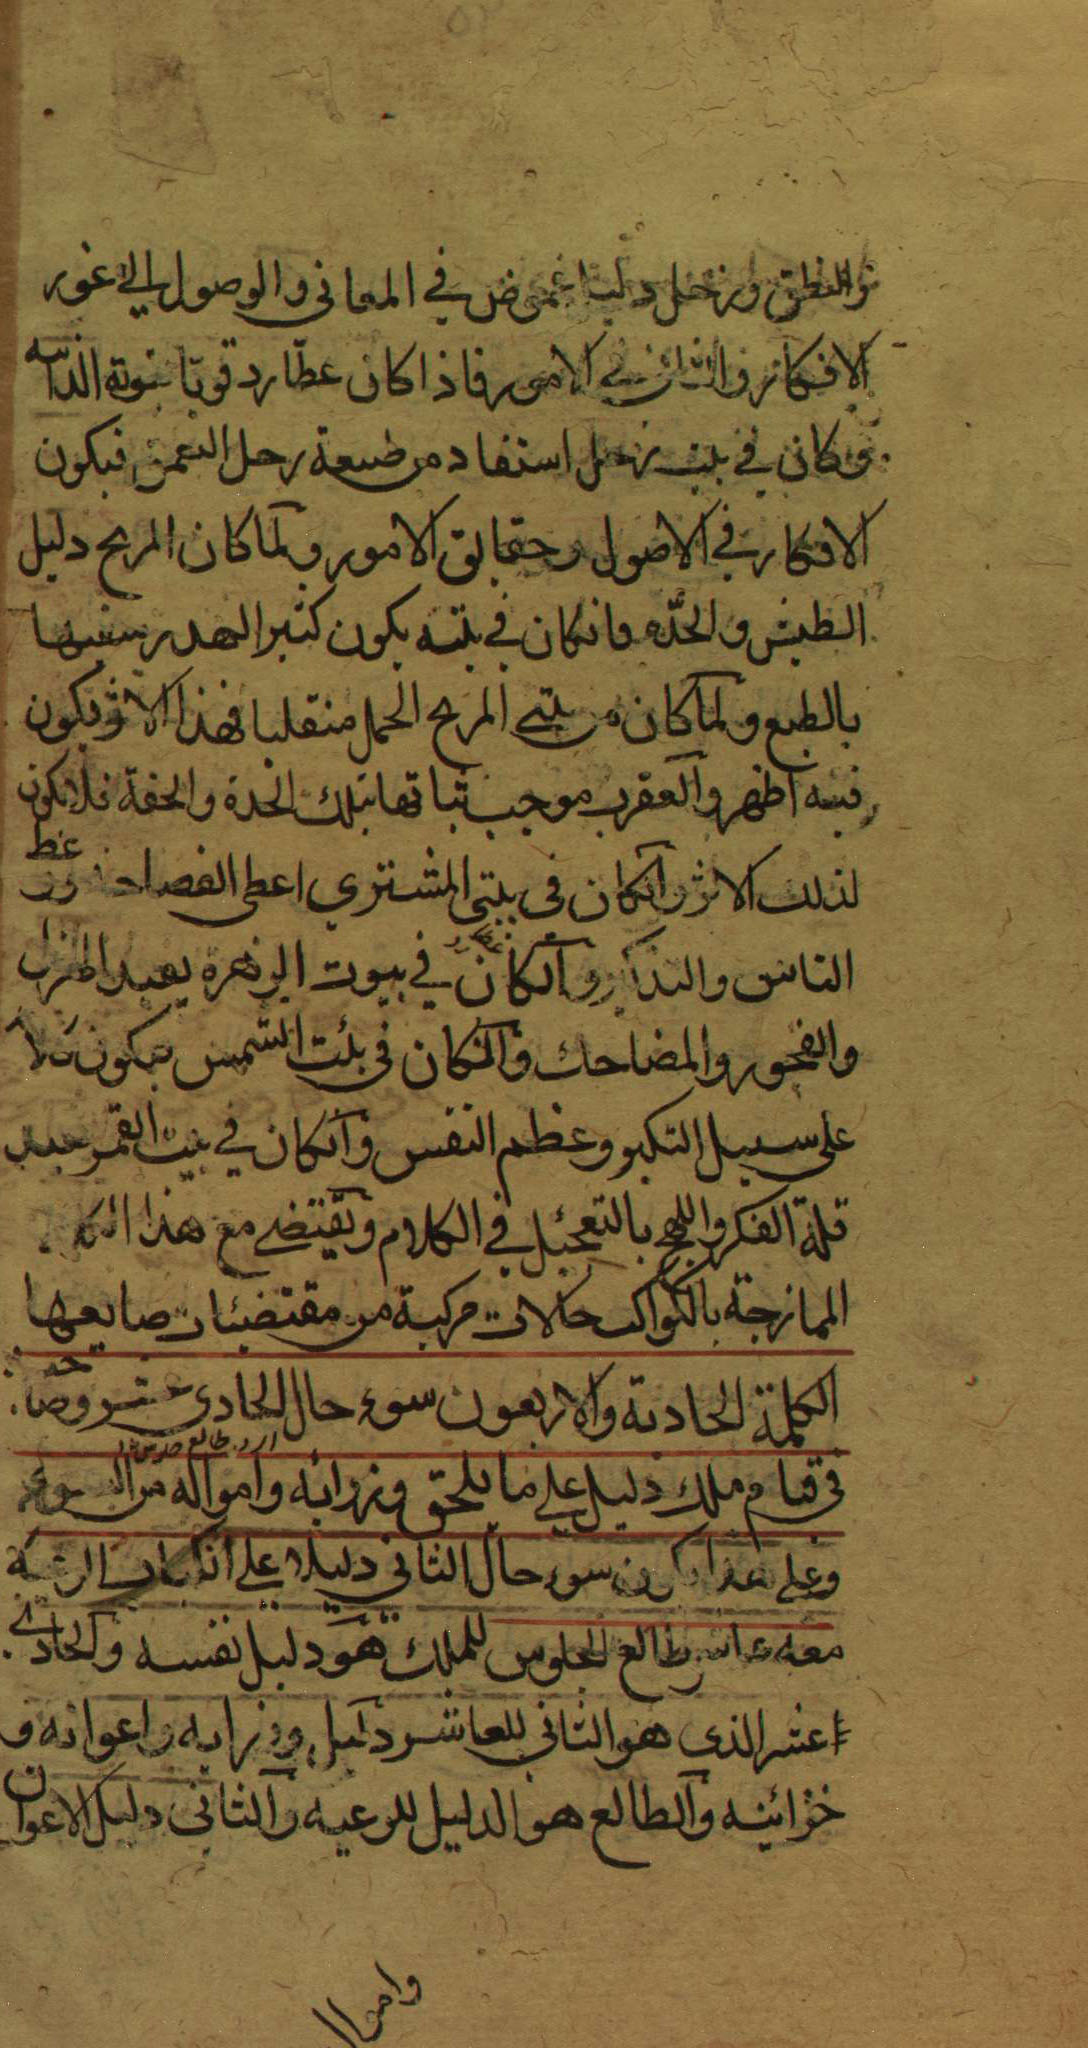 والنطق وزحل دليلا غموض في المعاني والوصول الي غور
الافكار والتاني في الامور فاذا كان عطارد قويا بقوته الذاتيه
وكان في بيت زحل استفاد من طبيعة زحل التعمق فيكون
الافكار في الاصول وحقايق الامور ولما كان المريخ دليل
الطيش والحده فانكان في بيته يكون كثير الهدر سفيها
بالطبع ولما كان من بيتي المريخ الحمل منقلبا فهذا الاثر يكون
فيه اظهر والعقرب موجب ثباتها بتلك الحدة والخفة فلايكون
لذلك الاثر وانكان في بيتي المشتري اعطي الفصاحة وعظ
الناس والتذكير وانكان في بيوت الزهره يفيد الهزل
والفجور والمضاحك وانكان في بيت الشمس فيكون
علي سبيل التكبر وعظم النفس وانكان في بيت القمر يفيد
قلة الفكر واللهج بالتعجيل في الكلام ويقتضي مع هذا
الممازجة بالكواكب حالات مركبة من مقتضيات طبايعها
الكلمة الحادية والاربعون سوء حال الحادي عشر
في قيام ملك دليل علي ما يلحق وزرائه وامواله من السوء
وعلي هذا يكون سوء حال الثاني دليلا علي
معه عاشر طالع الجلوس للملك هو دليل نفسه والحادي
عشر الذي هو الثاني للعاشر دليل وزرايه واعوانه و
خزائينه والطالع هو الدليل للرعيه والثاني دليل الاعوان
واموال